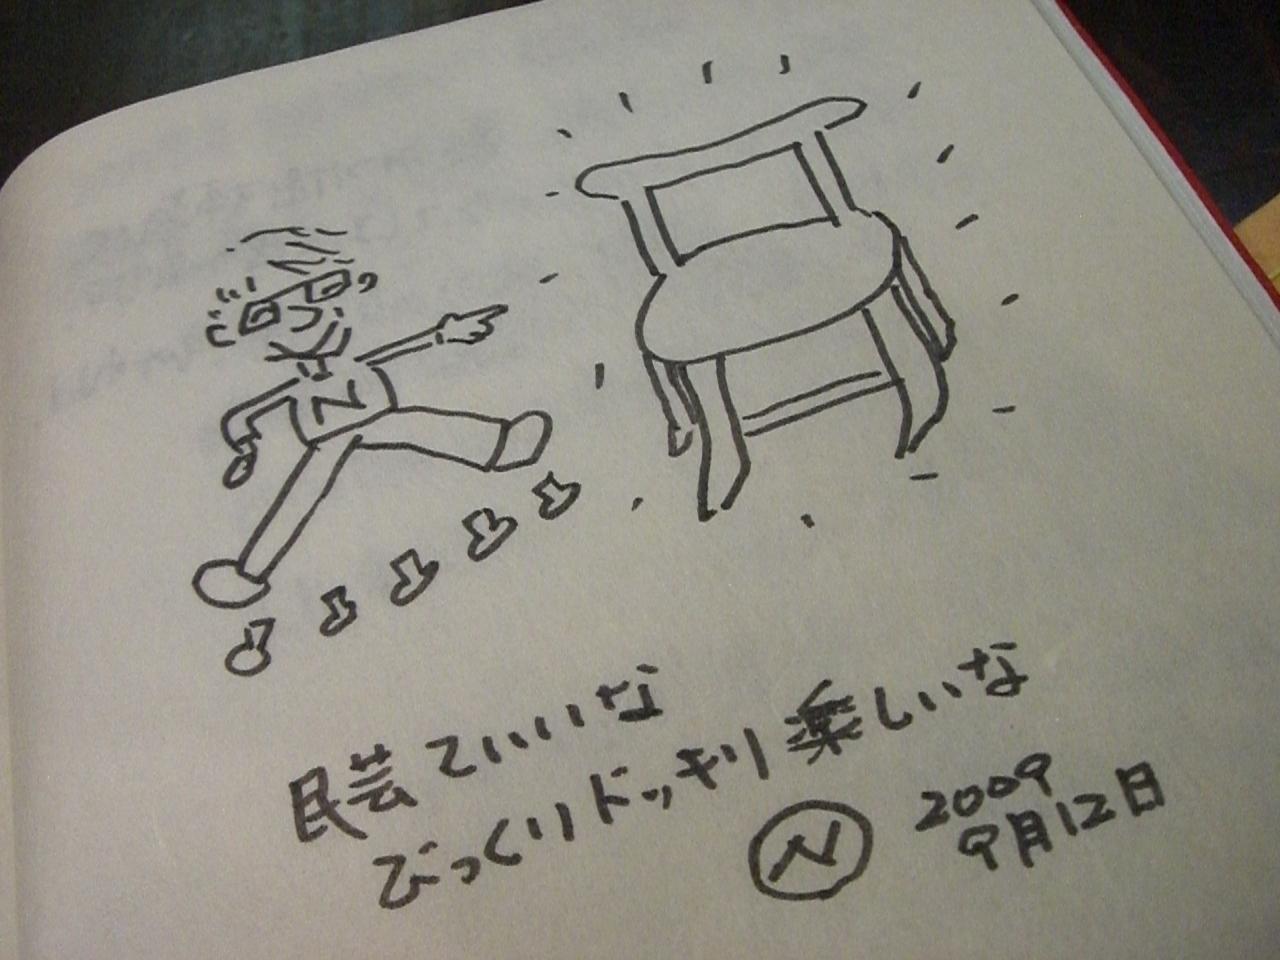 N
民芸ていいな
びっくりドッキリ楽しいな
N
2009
9月12日